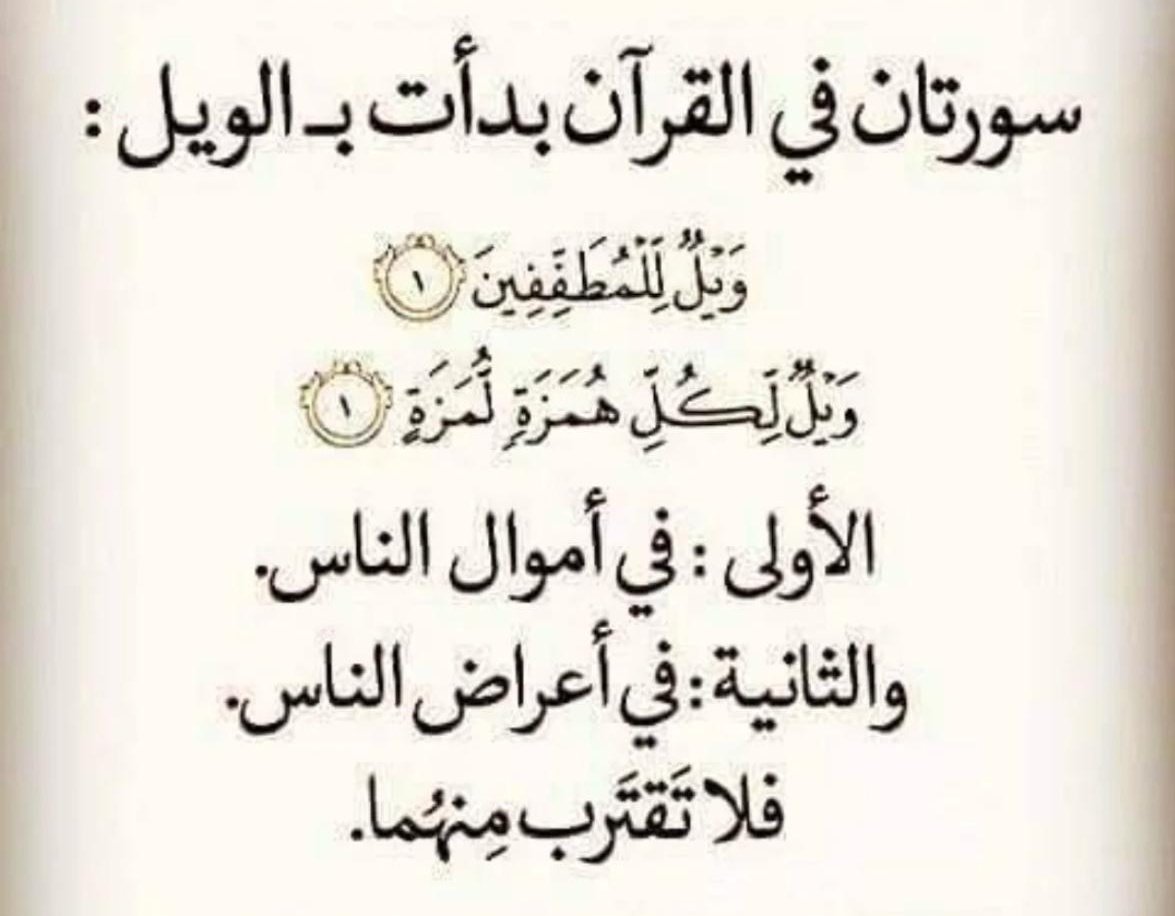 سورتان في القرآن بدأت بـ الويل :
وَيْلٌ لِّلْمُطَفِّفِينَ ١
وَيْلٌ لِّكُلِّ هُمَزَةٍ لُّمَزَةٍ ١
الأولى : في أموال الناس.
والثانية : في أعراض الناس.
فلا تَقتَرب مِنهُما.